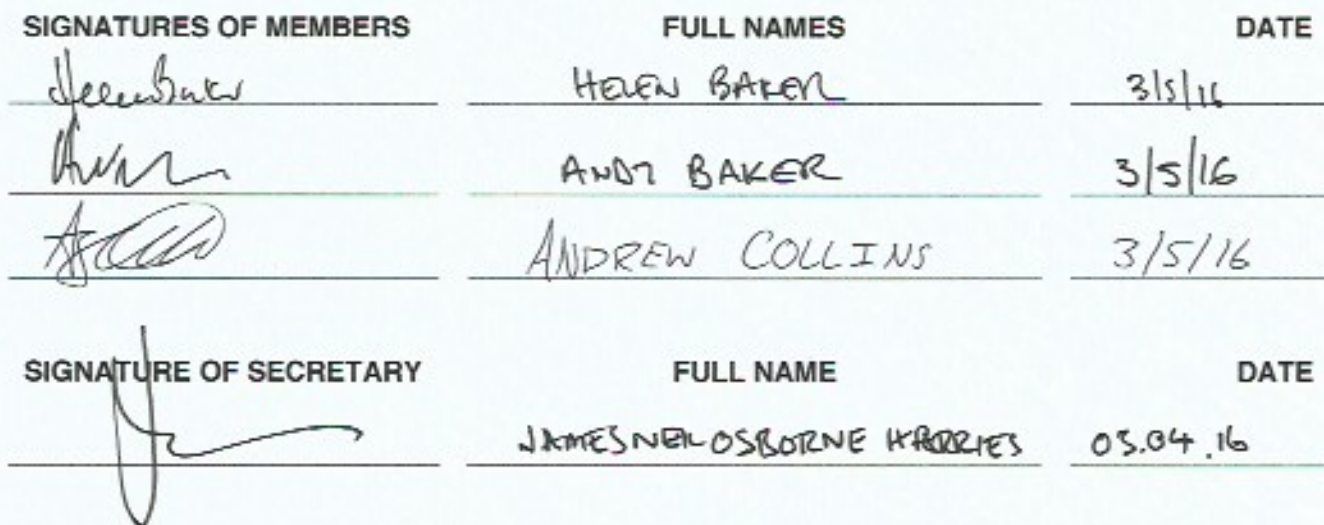 SIGNATURES OF MEMBERS FULL NAMES DATE
Helen Baker HELEN BAKER 3/5/16
ANDY BAKER 3/5/16
ANDREW COLLINS 3/5/16
SIGNATURE OF SECRETARY FULL NAME DATE
JAMES NEIL OSBORNE HARRIES 05.04.16